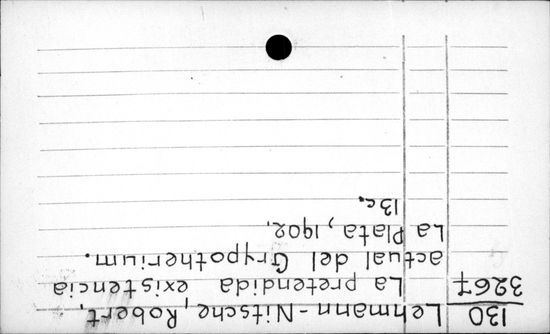 130
3267
Lehmann-Nitsche, Robert,
La pretendida existencia
actual del Grypotherium.
La Plata, 1902.
13c.